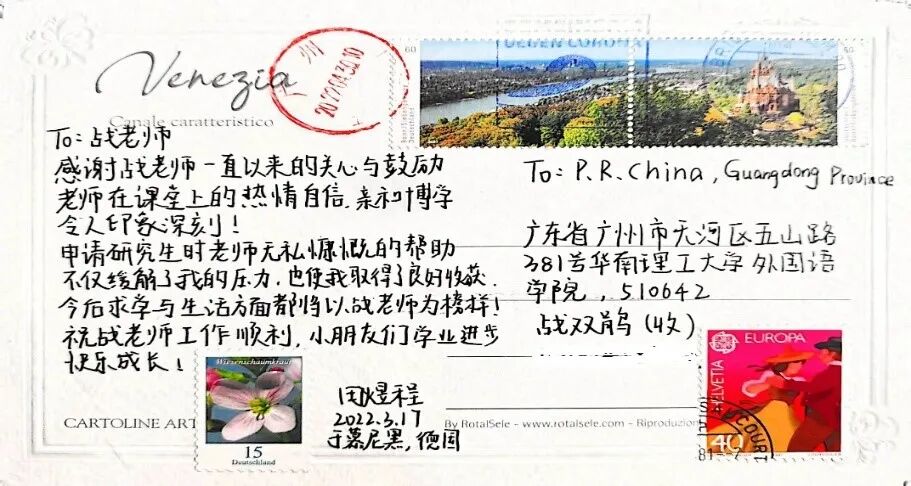 Venezia
Canale caratteristico
To: 战老师
感谢战老师一直以来的关心与鼓励
老师在课堂上的热情自信、亲和博学
令人印象深刻!
申请研究生时老师无私慷慨的帮助
不仅缓解了我的压力,也使我取得了良好收获.
今后求学与生活方面都将以战老师为榜样!
祝战老师工作顺利,小朋友们学业进步
快乐成长!
煜程
2022.3.17
于慕尼黑,德国
CARTOLINE ART
To: P.R.China, Guangdong Province
广东省广州市天河区五山路
381号华南理工大学外国语
学院,510642
战双鹃(收)
By RotalSele - www.rotalsele.com - Riproduzion
60
60
GEGEN CORONA
Wiesenschaumkraut
15
Deutschland
EUROPA
HELVETIA
40